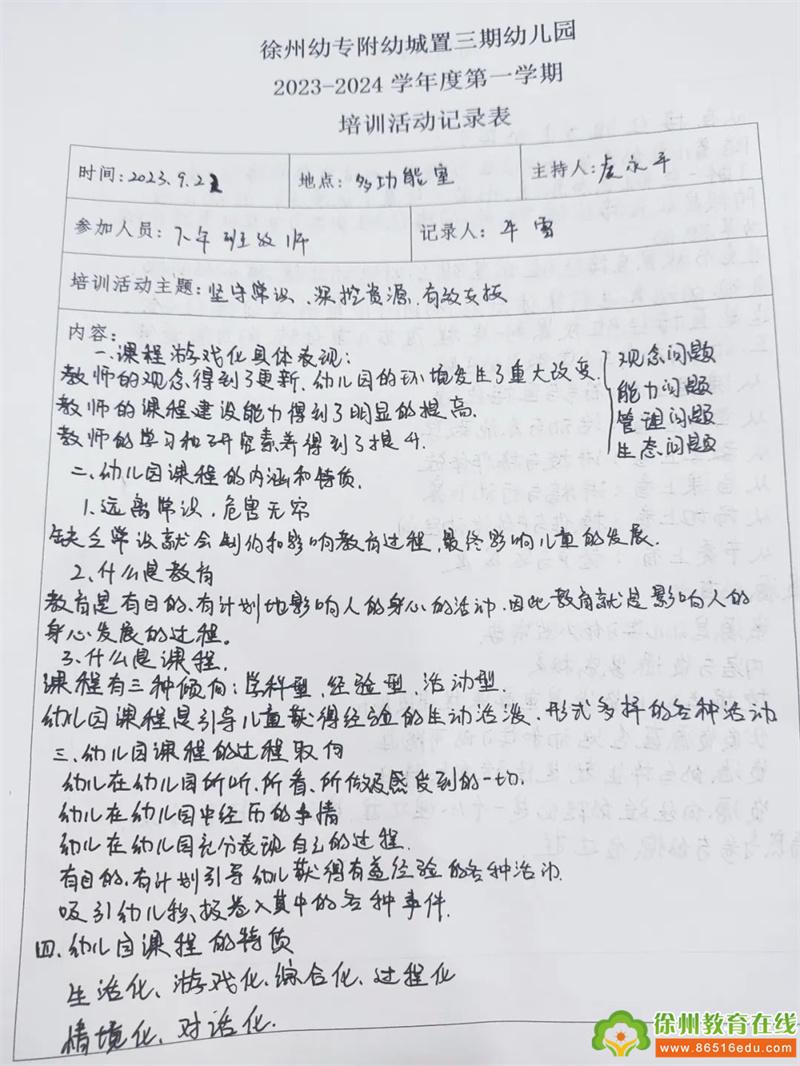 徐州幼专附幼城置三期幼儿园
2023-2024 学年度第一学期
培训活动记录表
时间:2023.9.22 地点:多功能室 主持人:虞永平
参加人员:下午班教师 记录人:牛雪
培训活动主题:坚守常识、深挖资源、有效支持
内容:
一.课程游戏化具体表现:
教师的观念得到了更新.幼儿园的环境发生了重大改变. 观念问题
教师的课程建设能力得到了明显的提高. 能力问题
管理问题
教师的学习和研究素养得到了提升. 生态问题
二.幼儿园课程的内涵和特质.
1.远离常识,危害无穷
缺乏常识就会制约和影响教育过程,最终影响儿童的发展.
2.什么是教育
教育是有目的、有计划地影响人的身心的活动.因此教育就是影响人的
身心发展的过程。
3.什么是课程.
课程有三种倾向:学科型、经验型、活动型.
幼儿园课程是引导儿童获得经验的生动活泼、形式多样的各种活动
三.幼儿园课程的过程取向
幼儿在幼儿园所听、所看、所做及感受到的一切.
幼儿在幼儿园中经历的事情
幼儿在幼儿园充分表现自己的过程.
有目的、有计划引导幼儿获得有益经验的各种活动.
吸引幼儿积极卷入其中的各种事件.
四.幼儿园课程的特质
生活化、游戏化、综合化、过程化
情境化、对话化.
徐州教育在线
www.86516edu.com